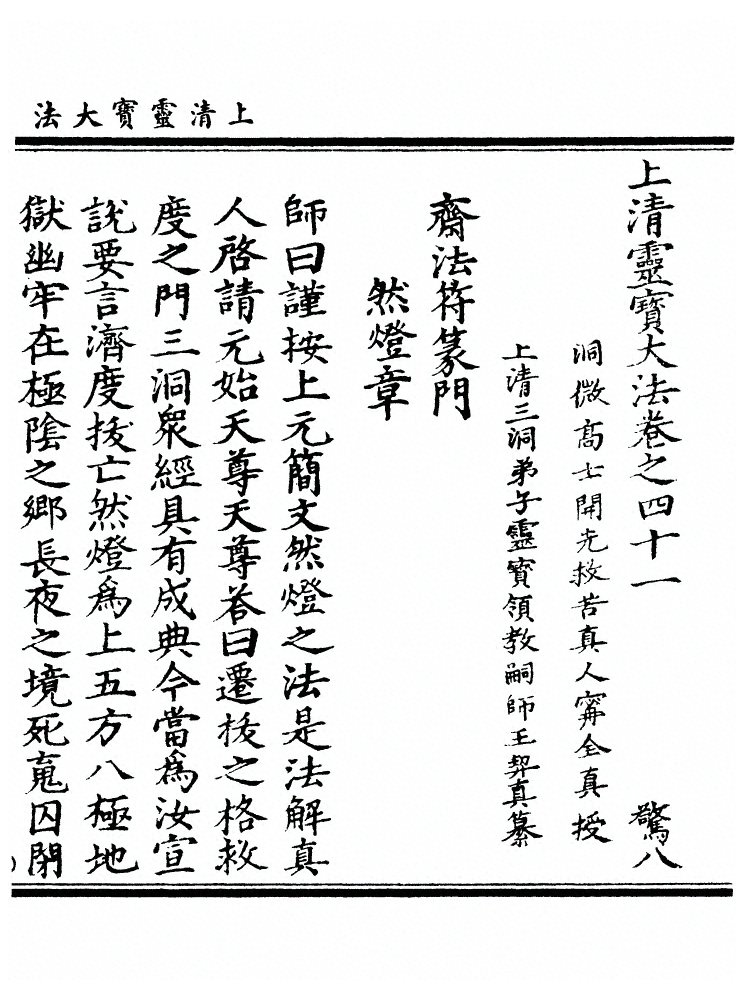 上清靈寶大法
上清靈寶大法卷之四十一 驚八
洞微高士開光救苦真人寗全真授
上清三洞弟子靈寶領教嗣師王契真纂
齋法符篆門
然燈章
師曰謹按上元簡文然燈之法是法解真
人啓請元始天尊天尊荅曰遷拔之格救
度之門三洞衆經具有成典今當爲汝宣
說要言濟度拔亡然燈爲上五方八極地
獄幽牢在極陰之鄉長夜之境死䰟囚閉